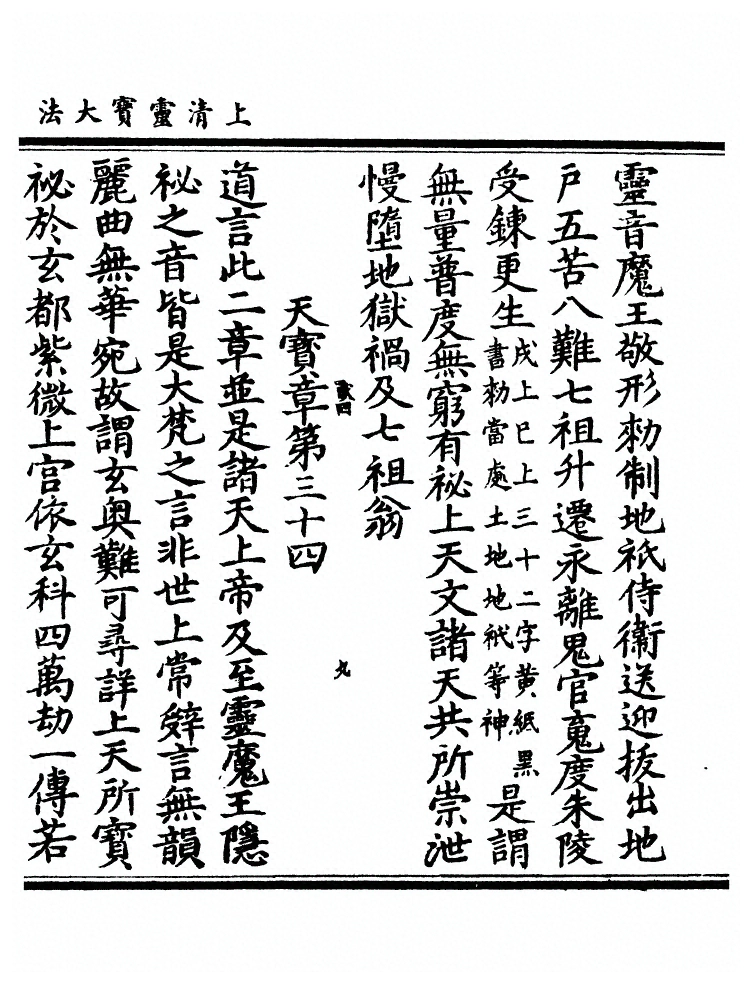 上清靈寶大法
靈音魔王敬形勑制地祇侍衛送迎拔出地
戶五苦八難七祖升遷永離鬼官䰟度朱陵
受鍊更生
戌上巳上三十二字黄紙黑
書勑當處土地地祇等神
是謂
無量普度無窮有祕上天文諸天共所崇泄
慢墮地獄禍及七祖翁
四
九
天寶章第三十四
道言此二章並是諸天上帝及至靈魔王隱
祕之音皆是大梵之言非世上常辝言無韻
麗曲無華宛故謂玄奥難可尋詳上天所寶
祕於玄都紫微上宮依玄科四萬劫一傳若